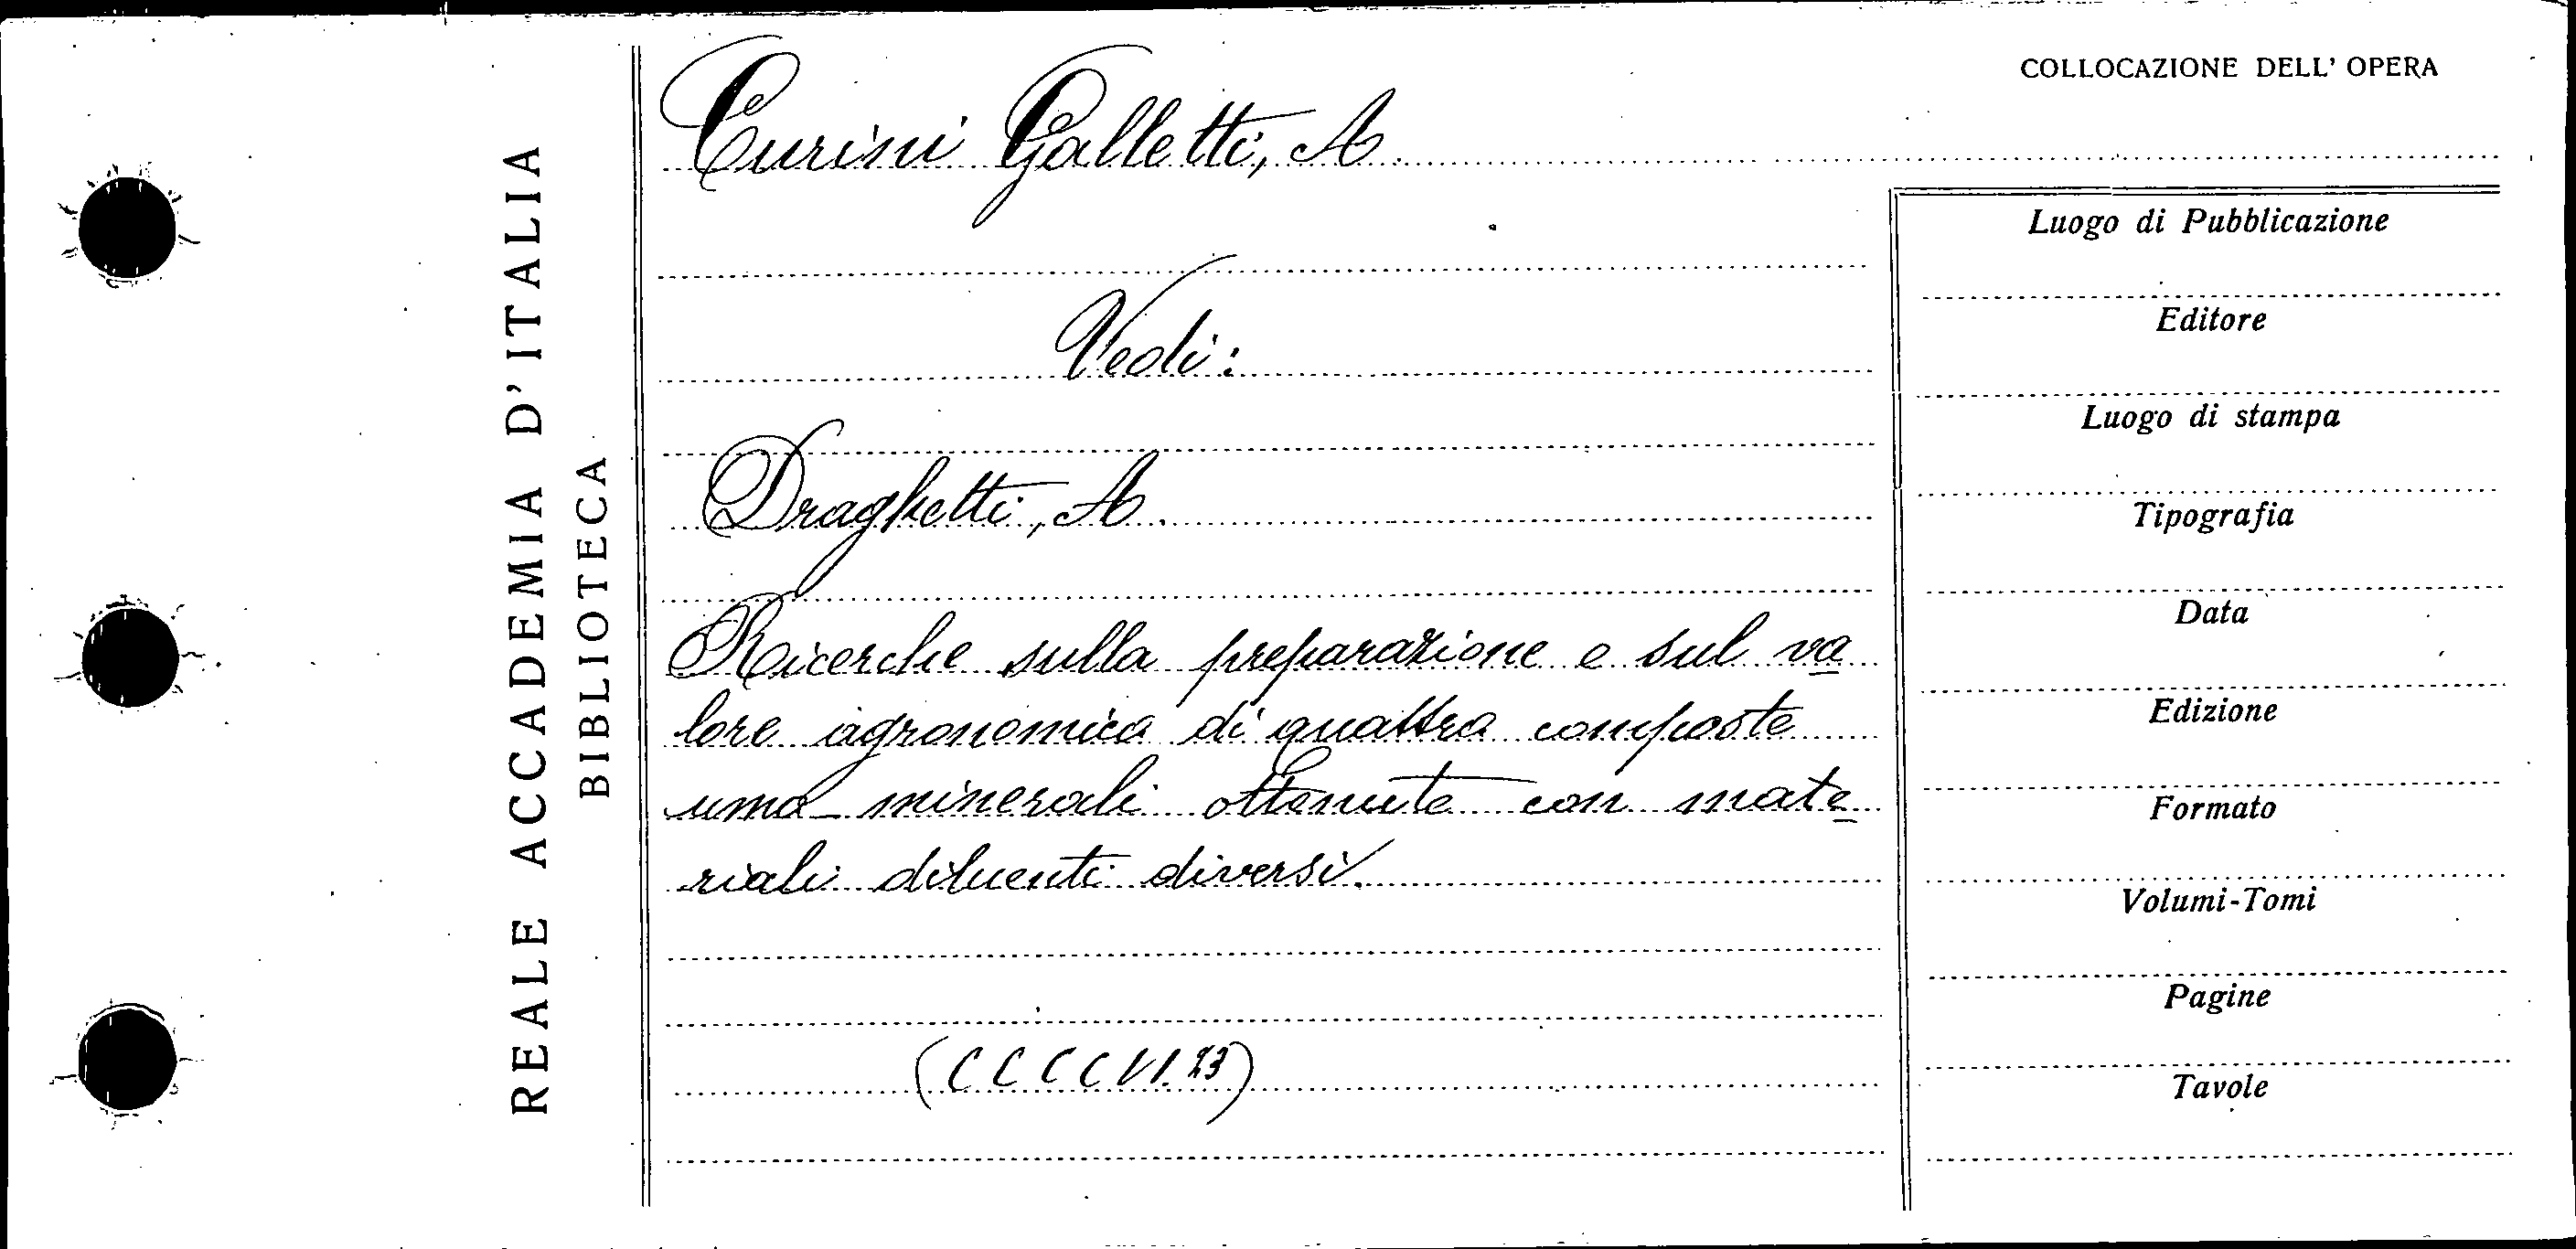 REALE ACCADEMIA D'ITALIA
BIBLIOTECA
COLLOCAZIONE DELL' OPERA
Curini Galletti, A.
Vedi:
Draghetti, A.
Ricerche sulla preparazione e sul va
lore agronomico di quattro composte
umo-minerali ottenute con mate
riali diluenti diversi.
(CCCCVI.23)
Luogo di Pubblicazione
Editore
Luogo di stampa
Tipografia
Data
Edizione
Formato
Volumi-Tomi
Pagine
Tavole